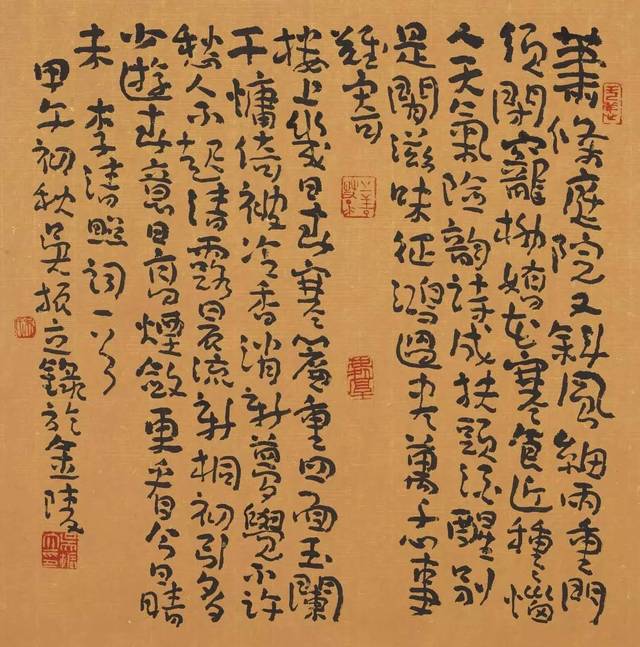 蕭條庭院又斜風細雨重門
須閉寵柳嬌花寒食近種々惱
人天氣險韻詩成扶頭酒醒別
是閒滋味征鴻過盡萬千心事
難寄
樓上幾日春寒簾重四面玉闌
干慵倚被冷香消新夢覺不許
愁人不起清露晨流新桐初引多
少遊春意日高煙斂更看今日晴
未 李清照詞一首
甲午初秋吳振立錄於金陵